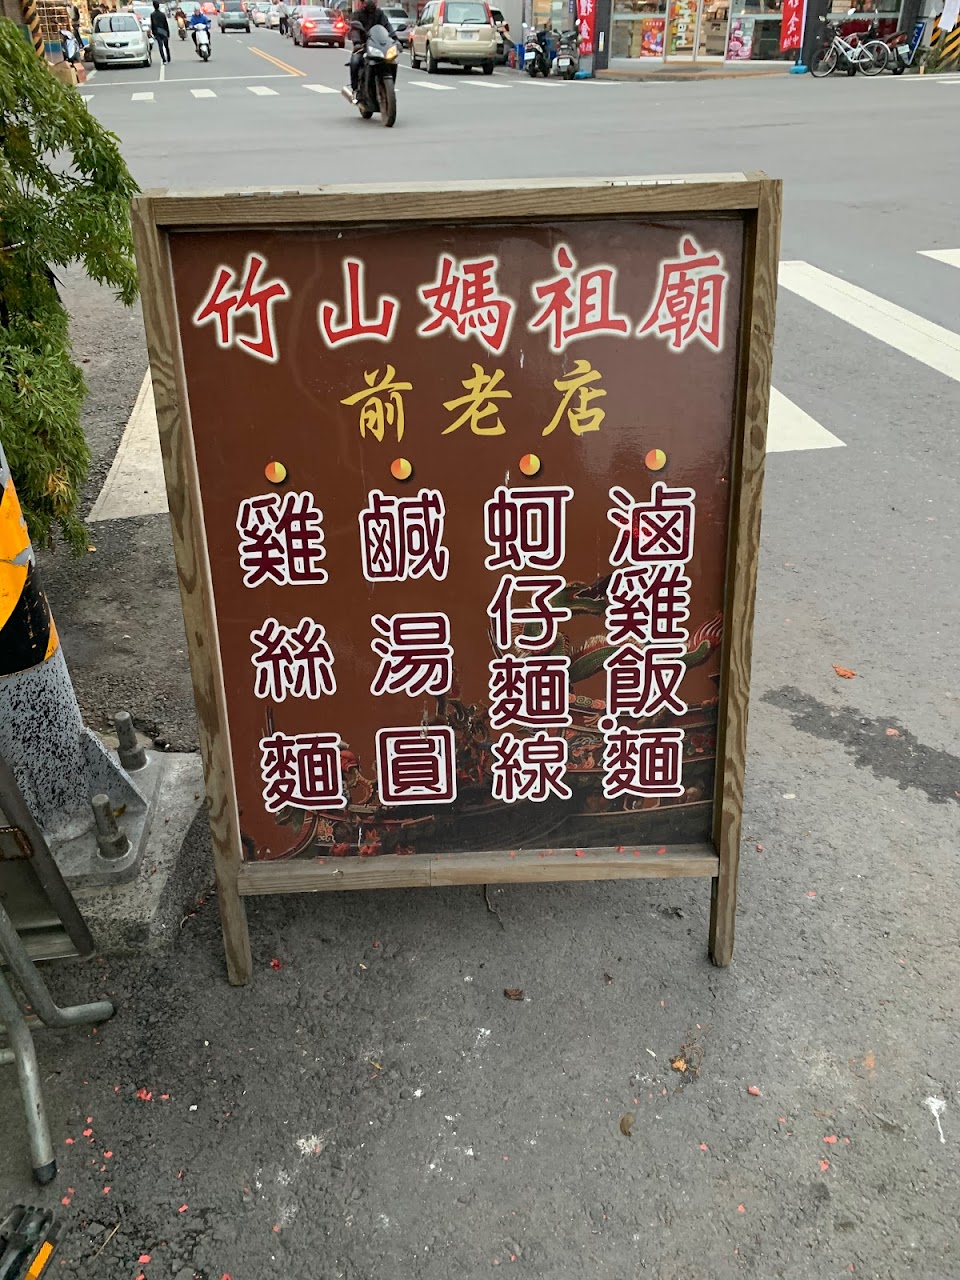 竹山媽祖廟
前老店
滷雞飯·麵
蚵仔麵線
鹹湯圓
雞絲麵